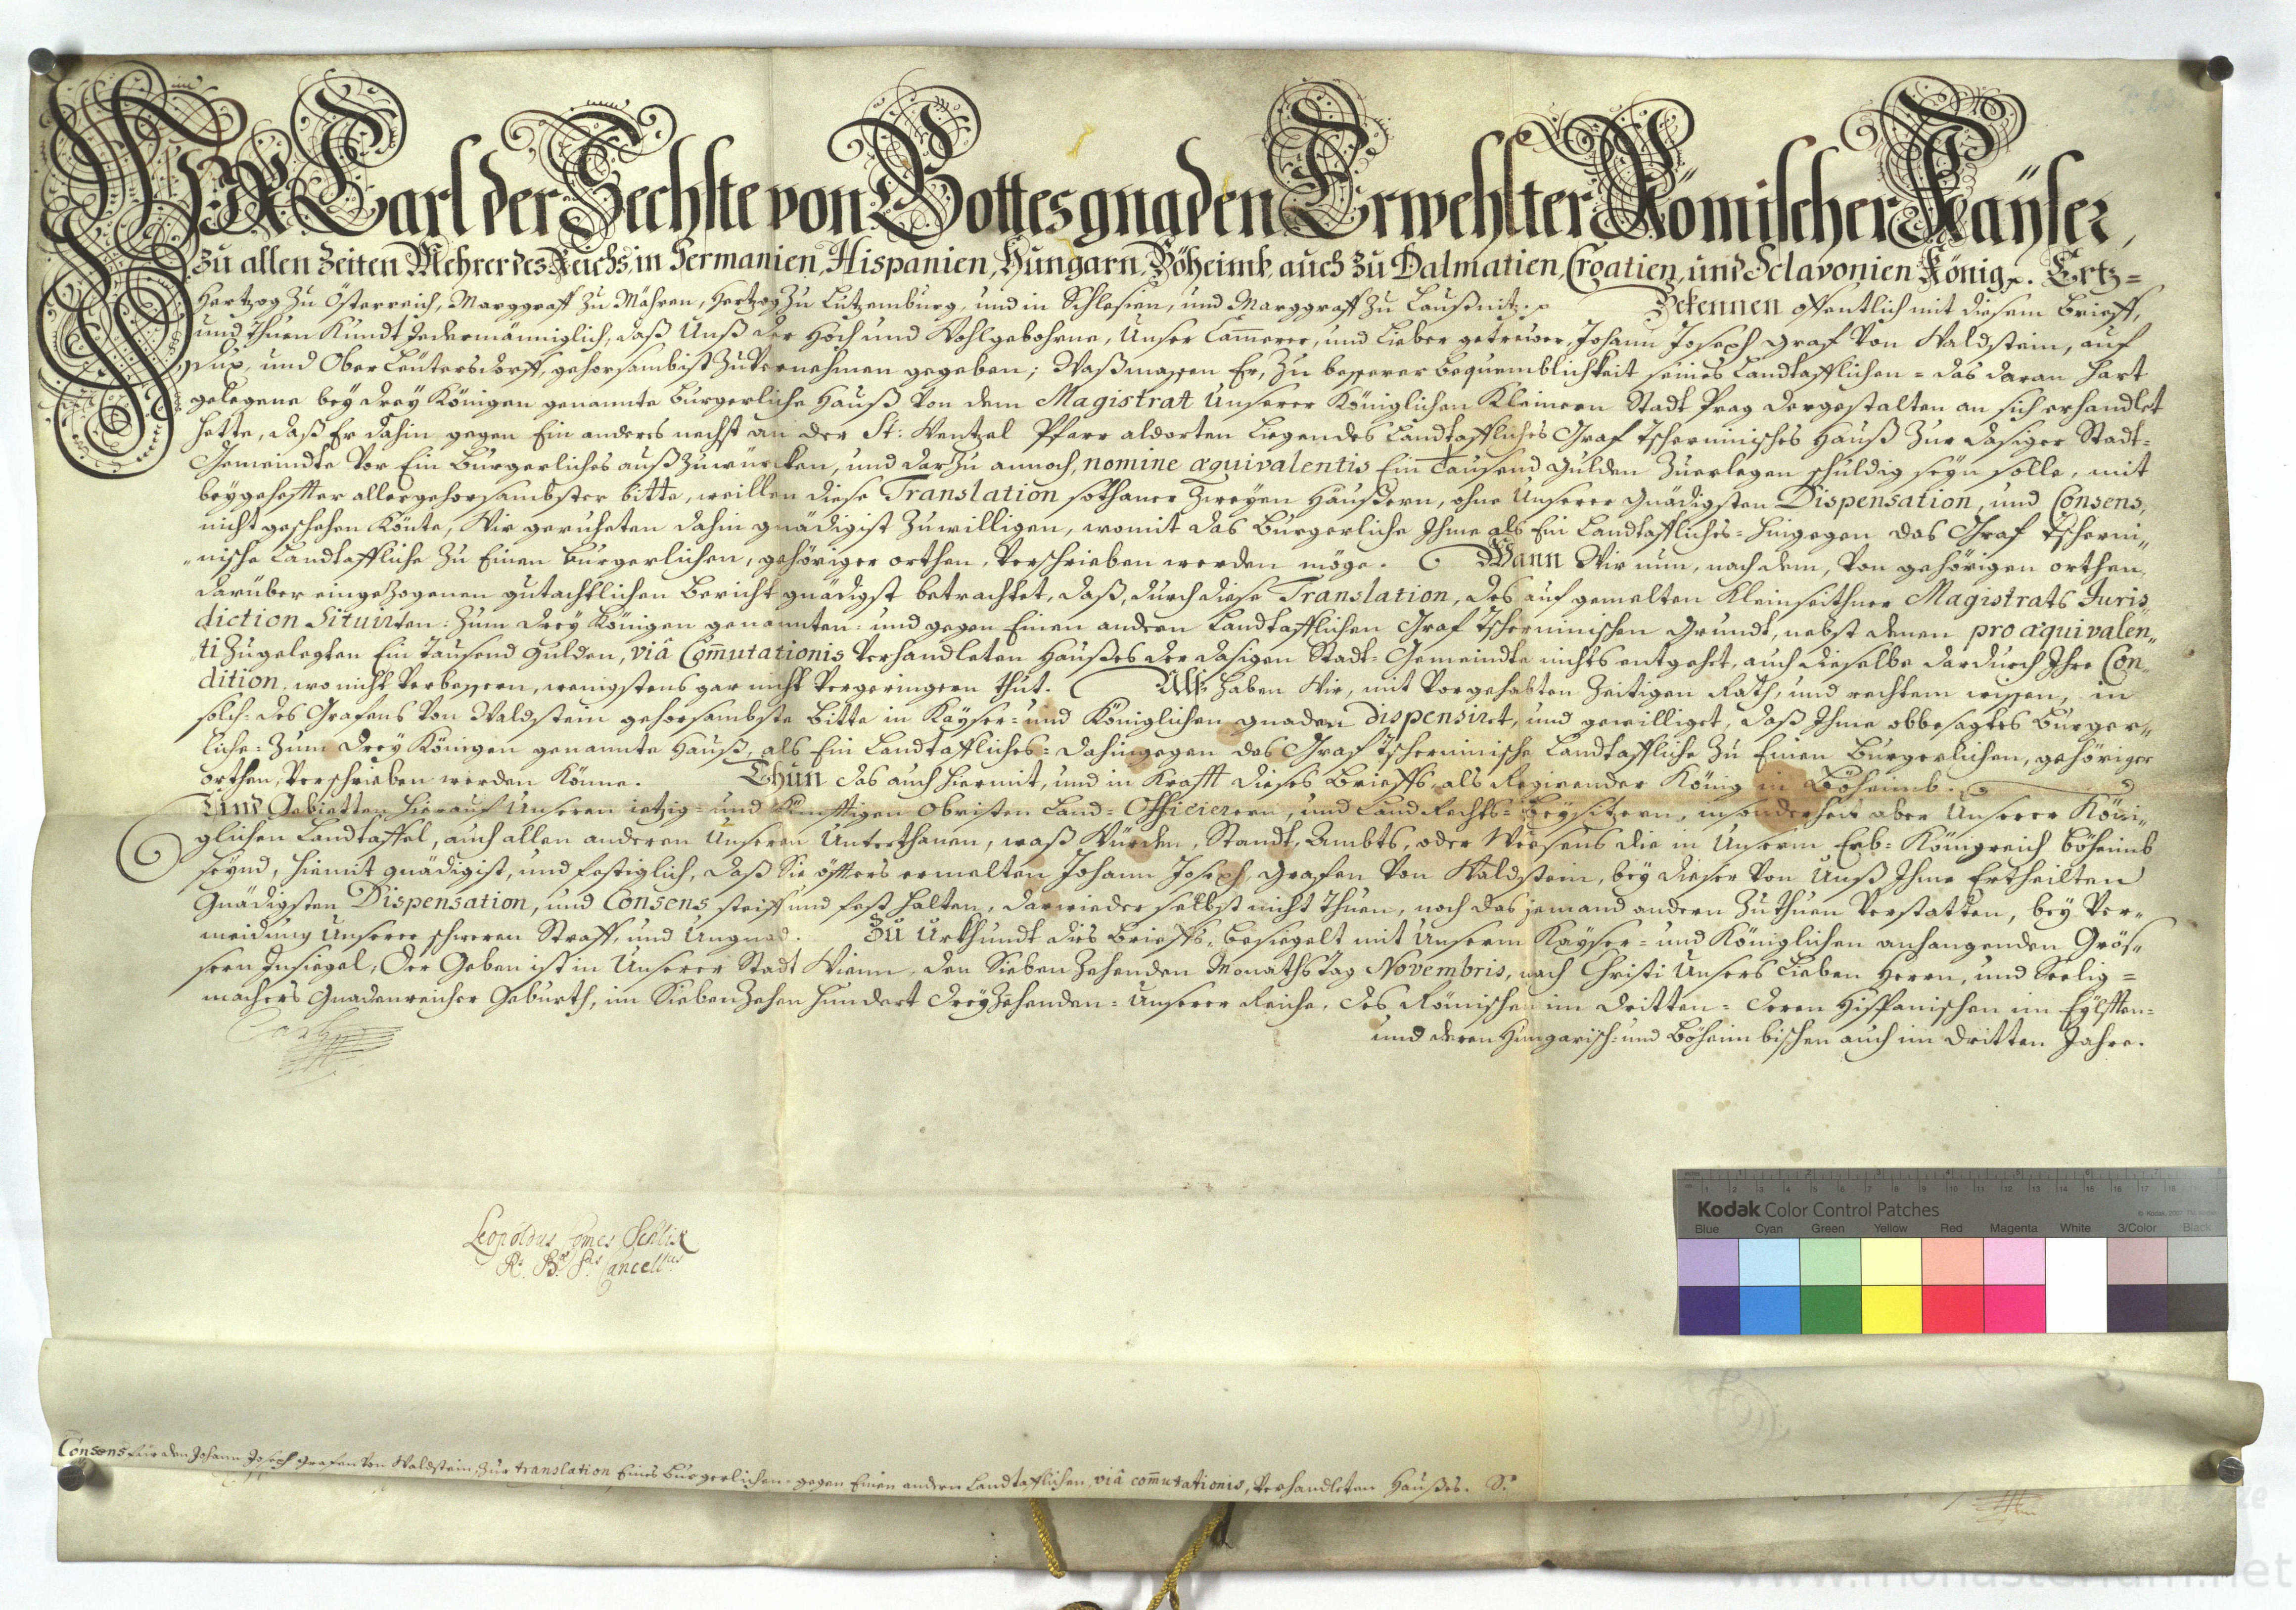 WIR Carl der Sechste von Gottes gnaden Erwehlter Römischer Kaÿser,
zu allen Zeiten Mehrer des Reichs, in Germanien, Hispanien, Hungarn, Böheimb, auch zu Dalmatien, Croatien, und Sclavonien König. Ertz=
Hertzog Zu Österreich, Marggraff Zu Mähren, Hertzog Zu Lutzemburg, und in Schlesien, und Marggraff Zu Laußnitz. Bekennen offentlich mit diesem Brieff,
und Thuen Kundt Jedermänniglich, daß Unß der Hoch und Wohlgebohrne, Unser Cam̄erer, und Lieber getrewer, Johann Joseph Graf Von Waldstein, auf
Dux, und Ober Leütersdorff, gehorsambist Zu Vernehmen gegeben; Waßmassen Er, Zu besserer bequemblichkeit seines Landtafflichen= das daran hart
gelegene bey drey Königen genannte Burgerliche Hauß Von dem Magistrat Unserer Königlichen Kleinern Stadt Prag dergestalten an sich erhandlet
hette, daß Er dahin gegen Ein anderes nechst an der St: Wentzel Pfarr aldorten Liegendes Landtaffliches Graf Tscherninisches Hauß Zur dasiger Stadt=
Gemeindte Vor Ein Burgerliches außzuwürcken, und darzu annoch, nomine æquivalentis Ein Tausend Gulden Zuerlegen schuldig seyn solle, mit
beygeheffter allergehorsambster bitte, weillen diese Translation sothaner Zweyen Häußern, ohne Unserer Gnädigsten Dispensation, und Consens,
nicht geschehen Könte, Wir geruheten dahin gnädigist Zuwilligen, womit das Burgerliche Ihme als Ein Landtaffliches= hingegen das Graf Tscherni„
„nische Landtaffliche Zu Einen Burgerlichen, gehöriger orthen, Verschrieben werden möge. Wann Wir nun, nach dem, Von gehörigen orthen
darüber eingezogenen gutachtlichen Bericht gnädigst betrachtet, daß, durch diese Translation, des auf gemelten Kleinseithner Magistrats Juris„
diction Situirten= Zum drey Königen genannten= und gegen Einen andern Landtafflichen Graf Tscherninischen Grundt, nebst denen pro æquivalen„
„ti Zugelegten Ein Tausend Gulden, viâ Com̄utationis Verhandleten Haußes der dasigen Stadt=Gemeindte nichts entgehet, auch dieselbe dardurch Ihre Con„
dition, wo nicht Verbessern, wenigstens gar nicht Vergeringern thut. Alß haben Wir, mit Vorgehabten Zeitigen Rath, und rechtem wissen, in
solch= des Grafens Von Waldstein gehorsambste bitte in Kayser= und Königlichen gnaden dispensiret, und gewilliget, daß Ihme obbesagtes Burger„
liche= Zum drey Königen genannte Hauß, als Ein Landtaffliches= dahingegen das Graf Tscherninische Landtaffliche Zu Einen Burgerlichen, gehöriger
orthen, Verschrieben werden Könne. Thun das auch hiermit, und in Krafft dieses Brieffs, als Regierender König in Böheimb.
Und Gebietten hierauf Unseren ietzig= und Künfftigen Obristen Land=Officierern, und Land Rechts=Beysitzern, insonderheit aber Unserer Köni„
glichen Landtaffel, auch allen anderen Unseren Unterthanen, waß Würden, Standt, Ambts, oder Weesens die in Unserm Erb=Königreich Böheimb
seynd, hiemit gnädigist, und festiglich, daß Sie öffters ermelten Johann Joseph, Grafen Von Waldstein, bey dieser Von Unß Ihme Ertheilten
Gnädigsten Dispensation, und Consens steiff und fest halten, darwieder selbst nicht Thuen, noch das jemand andern Zuthuen Verstatten, bey Ver„
meidung Unserer schweren Straff, und Ungnad. Zu Urkhundt dies Brieffs, besiegelt mit Unserm Kayser= und Königlichen anhangenden Grös„
sern Insiegel, Der Geben ist in Unserer Stadt Wienn, den Sieben Zehenden Monaths Tag Novembris, nach Christi Unsers Lieben Herrn, und Seelig=
machers Gnadenreicher Geburth, im Sieben Zehen hundert dreyZehenden= Unserer Reiche, des Römischen im dritten= deren Hispanischen im Eylfften=
und deren Hungarisch= und Böheimbischen auch im dritten Jahre.
Carl
Leopoldus Comes Schlik
Rs. Bæ. Sus Cancellus
Consens für den Johann Joseph Grafen Von Waldstein, Zur translation Eines Burgerlichen= gegen Einen andern Landtafflichen, viâ com̄utationis, Verhandleten Haußes.
Kodak Color Control Patches
Blue Cyan Green Yellow Red Magenta White 3/Color Black
www.monasterium.net